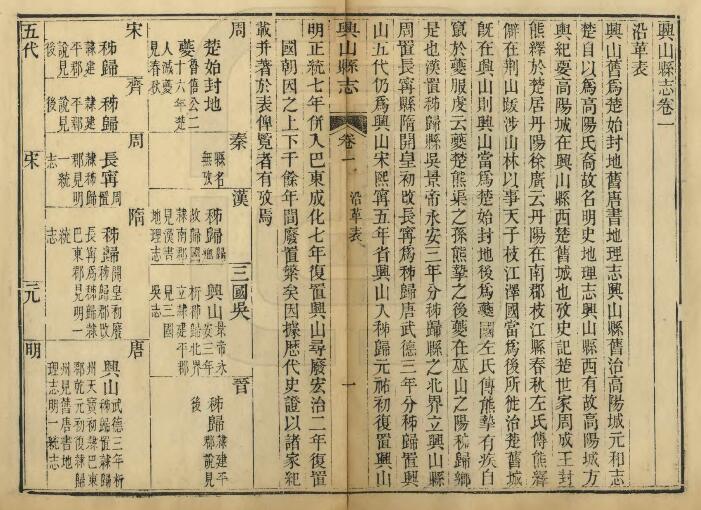 興山縣志卷一
沿革表
興山舊爲楚始封地舊唐書地理志興山縣舊治高陽城元和志
楚自以爲高陽氏裔故名明史地理志興山縣西有故高陽城方
輿紀要高陽城在興山縣西楚舊城也攷史記楚世家周成王封
熊繹於楚居丹陽徐廣云丹陽在南郡枝江縣春秋左氏傳熊繹
僻在荆山跋涉山林以事天子枝江澤國當爲後所徙治楚舊城
既在興山則興山當爲楚始封地後爲夔國左氏傳熊摯有疾自
竄於夔服虔云夔楚熊渠之孫熊摯之後夔在巫山之陽秭歸鄉
是也漢置秭歸縣吳景帝永安三年分秭歸縣之北界立興山縣
周置長寗縣隋開皇初改長寗爲秭歸唐武德三年分秭歸置興
山五代仍爲興山宋熙寗五年省興山入秭歸元祐初復置興山
興山縣志
卷一
沿革表
一
明正統七年併入巴東成化七年復置興山尋廢宏治二年復置
國朝因之上下千餘年間廢置綮矣因據歷代史證以諸家紀
載并著於表俾覽者有攷焉
周
楚始封地
夔魯僖公二
十六年楚
人滅夔
見春秋
秦
縣名
無攷
漢
秭歸
故歸國
隸南郡
見漢書
地理志
三國吳
興山景帝永
安三年
析秭歸北界
立隸建平郡
見三國
吳志
晉
秭歸隸建平
郡說見
後
宋
秭歸
隸建
平郡
說見
後
齊
秭歸
隸建
說見
後
周
長寗周
置
隸秭歸
郡見明
一統
志
隋
秭歸開皇初廢
秭歸郡改
長寗爲秭歸隸
巴東郡見明一
統
志
唐
興山武德三年析
秭歸置隸歸
州天寶初隸巴東
郡乾元初復隸歸
州見舊唐書地
理志明一統志
五代
宋
元
明